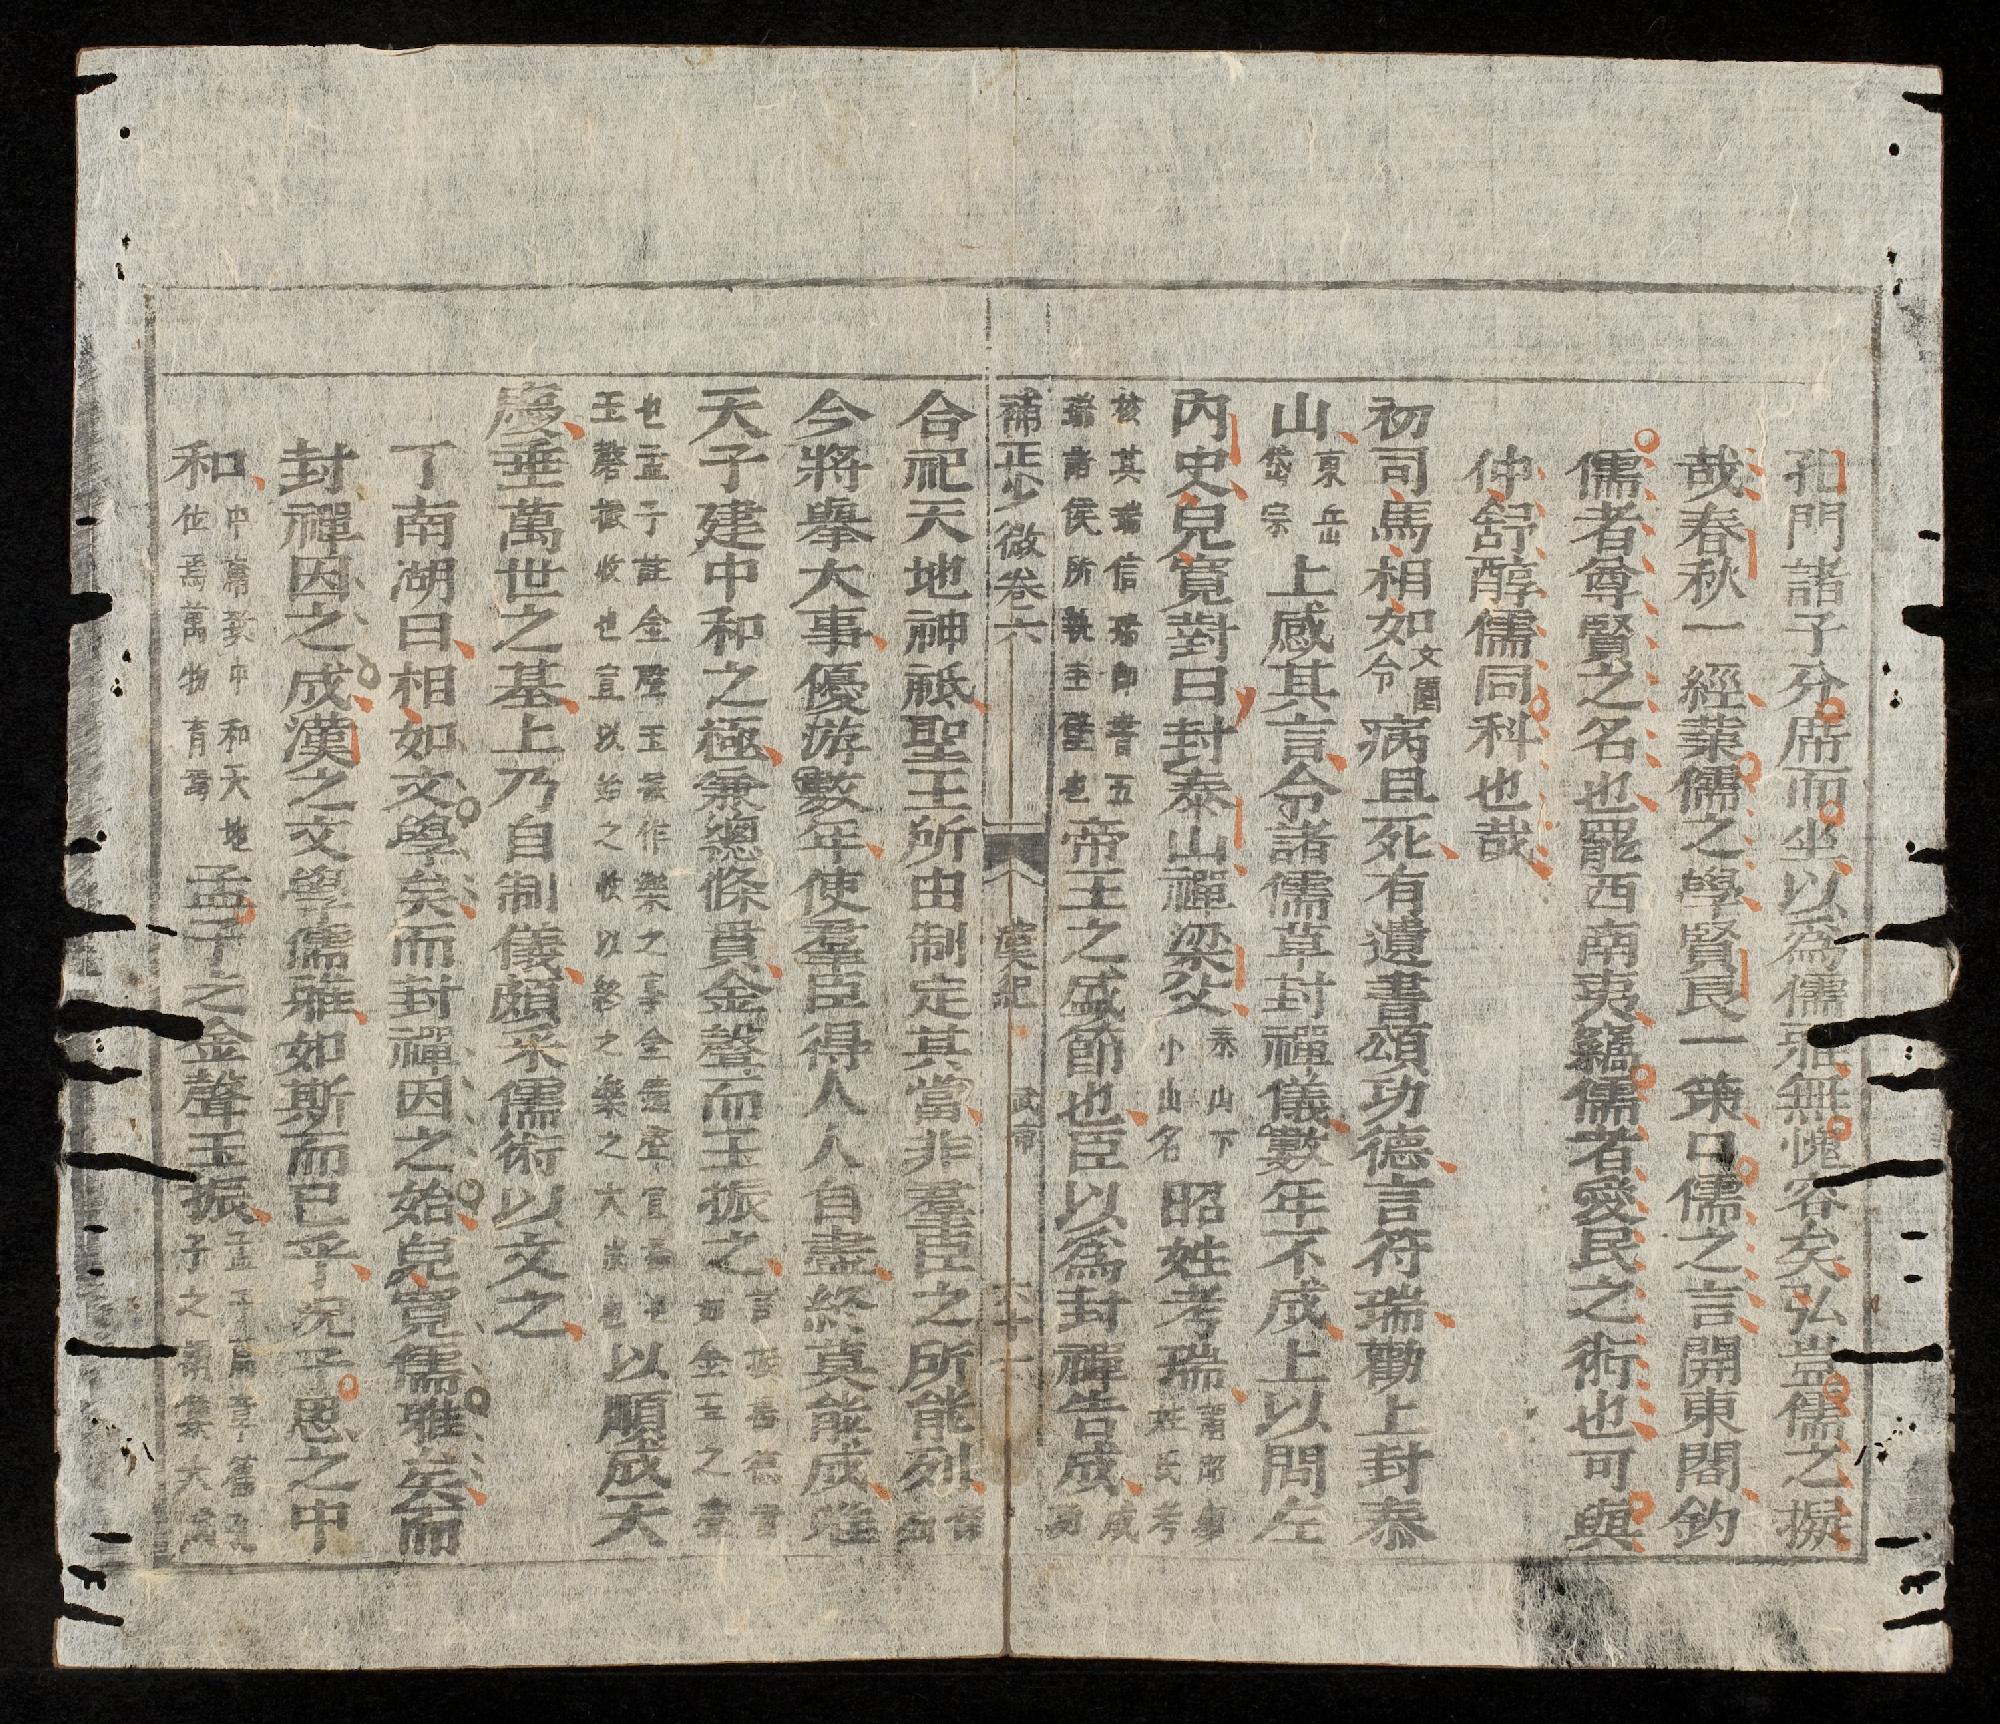 孔門諸子分席而坐以為儒雅無愧容矣弘豈儒之擬
哉春秋一經業儒之學賢良一策口儒之言開東閣釣
儒者尊賢之名也罷西南夷竊儒者愛民之術也可與
仲舒醇儒同科也哉
初司馬相如文園令病且死有遺書頌功德言符瑞勸上封泰
山東岳岱宗上感其言令諸儒草封禪儀數年不成上以問左
內史兒寬對曰封泰山禪梁父泰山下小山名昭姓考瑞謂昭姓氏考
核其瑞信瑞即書五瑞諸侯所執圭璧也帝王之盛節也臣以為封禪告成
合祀天地神祇聖王所由制定其當非羣臣之所能列
今將舉大事優游數年使羣臣得人人自盡終莫能成唯
天子建中和之極兼總條貫金聲而玉振之言振揚德音如金玉之聲
也孟子註金聲玉振作樂之事金鍾聲宣也玉磬振收也宣以始之收以終之樂之大成也以順成天
慶垂萬世之基上乃自制儀頗采儒術以文之
丁南湖曰相如文學矣而封禪因之始兒寬儒雅矣而
封禪因之成漢之文學儒雅如斯而已乎況子思之中
和中庸致中和天地位焉萬物育焉孟子之金聲玉振孟子萬章篇孔子之謂集大成
補正少微卷六 漢紀 武帝